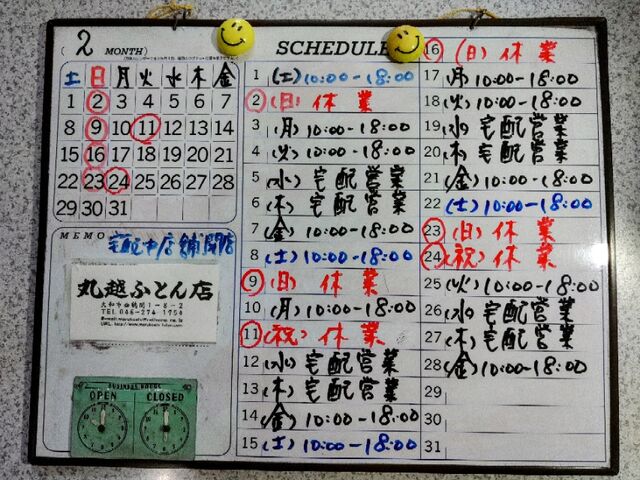 ( 2 MONTH)
土 日 月 火 水 木 金
1 2 3 4 5 6 7
8 9 10 11 12 13 14
15 16 17 18 19 20 21
22 23 24 25 26 27 28
29 30 31
MEMO
宅配中店舗閉店
丸越ふとん店
大和市西鶴間1-8-2
TEL 046-274-1754
BUSINESS HOURS
OPEN CLOSED
SCHEDULE
1 (土) 10:00-18:00
2 (日) 休業
3 (月) 10:00-18:00
4 (火) 10:00-18:00
5 (水) 宅配営業
6 (木) 宅配営業
7 (金) 10:00-18:00
8 (土) 10:00-18:00
9 (日) 休業
10 (月) 10:00-18:00
11 (祝) 休業
12 (水) 宅配営業
13 (木) 宅配営業
14 (金) 10:00-18:00
15 (土) 10:00-18:00
16 (日) 休業
17 (月) 10:00-18:00
18 (火) 10:00-18:00
19 (水) 宅配営業
20 (木) 宅配営業
21 (金) 10:00-18:00
22 (土) 10:00-18:00
23 (日) 休業
24 (祝) 休業
25 (火) 10:00-18:00
26 (水) 宅配営業
27 (木) 宅配営業
28 (金) 10:00-18:00
29
30
31